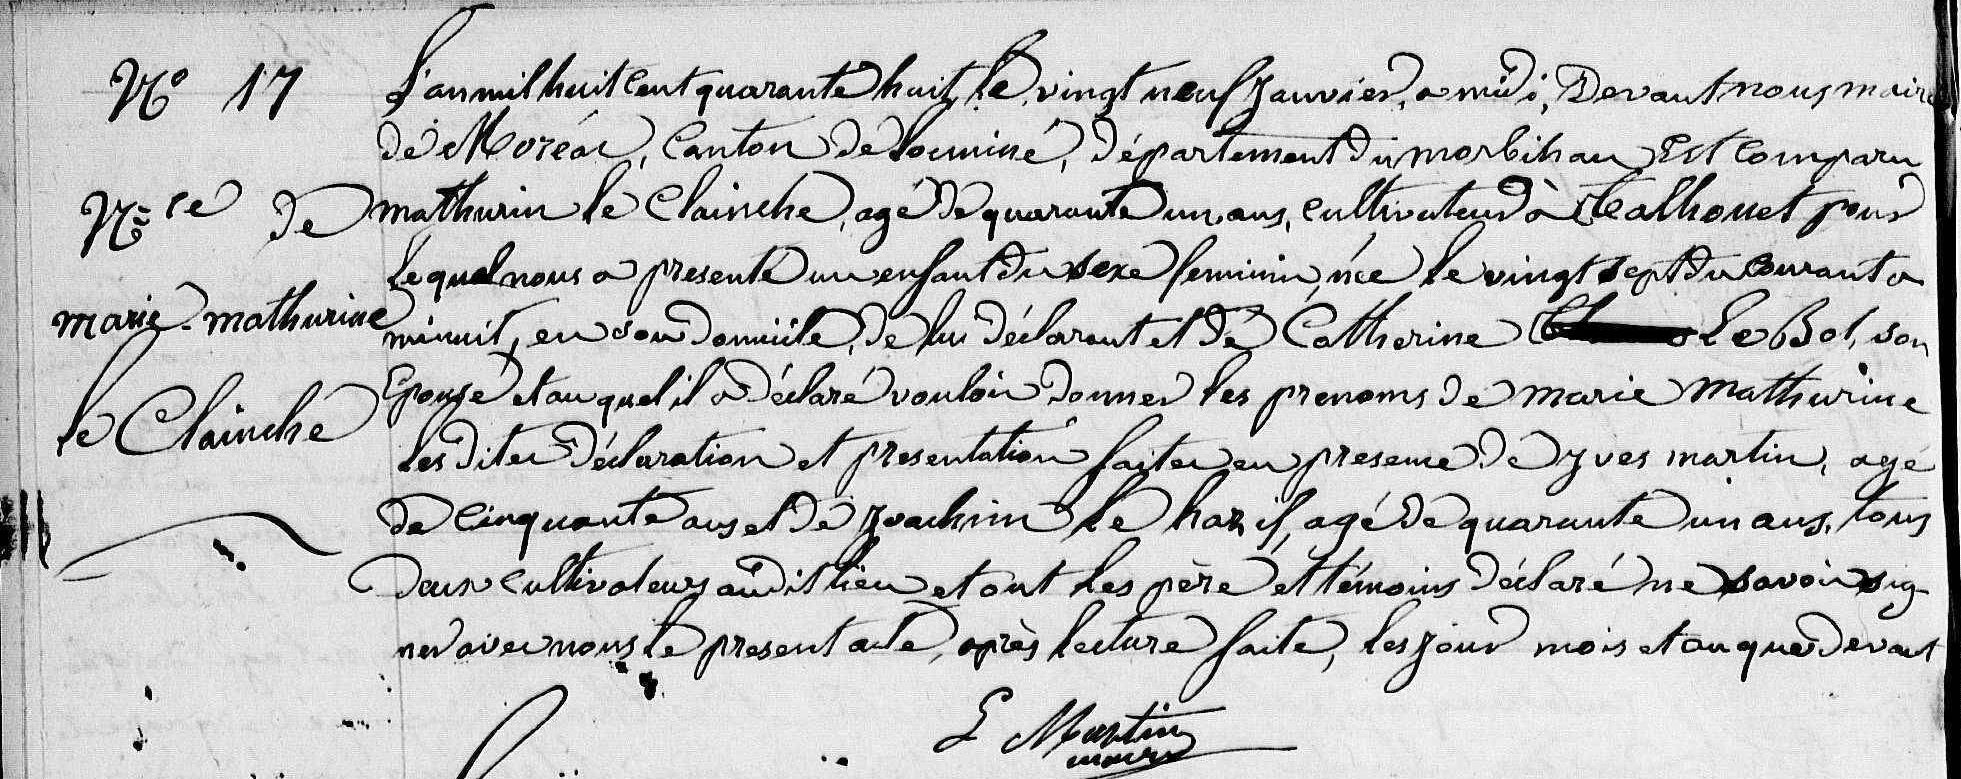 No 17
L'an mil huit cent quarante huit, le vingt neuf Janvier, a midi, Devant nous maire
de Moréac, Canton de Locminé, département du morbihan Est Comparu
Nce de
mathurin le Clainche, agé de quarante un ans, cultivateur à Talhouet pour
Lequel nous a presenté un enfant du sexe feminin, née le vingt sept du Courant a
marie-mathurine
minuit, en son domicile, de lui déclarant et de Catherine Le Bol, son
Epouse et auquel il a déclaré vouloir donner les prenoms de marie Mathurine
le Clainche
les dites déclaration et presentation faites en presence de yves martin, agé
de Cinquante ans et de Joachim le haz if, agé de quarante un ans, tous
deux cultivateurs audit lieu et ont les père et témoins déclaré ne savoir sig
ner avec nous le present acte, après lecture faite, les jour mois et an que devant
E Martin
maire